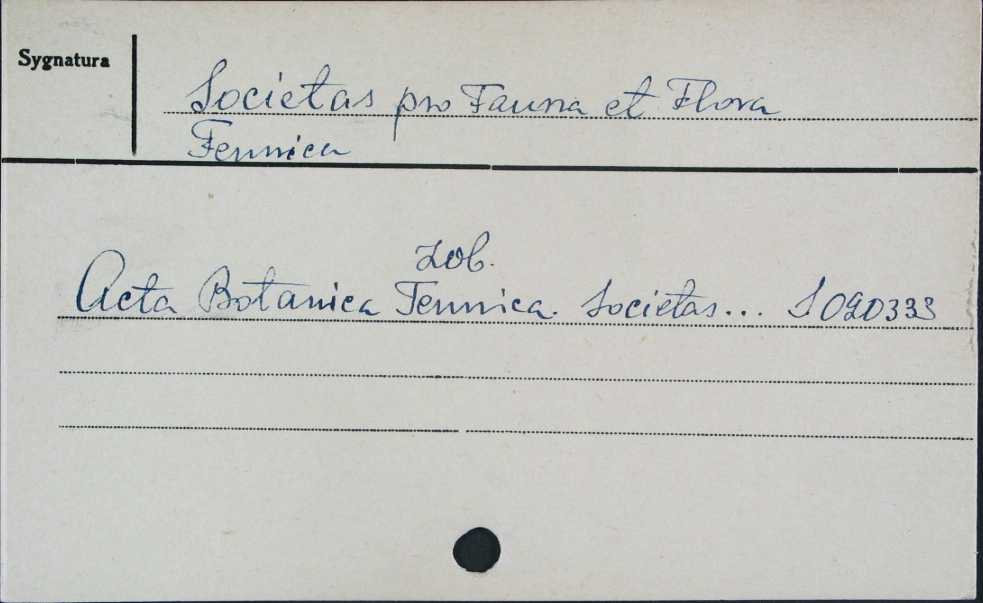 Sygnatura
Societas pro Fauna et Flora
Fennica
Zob.
Acta Botanica Fennica. Societas... S 090333